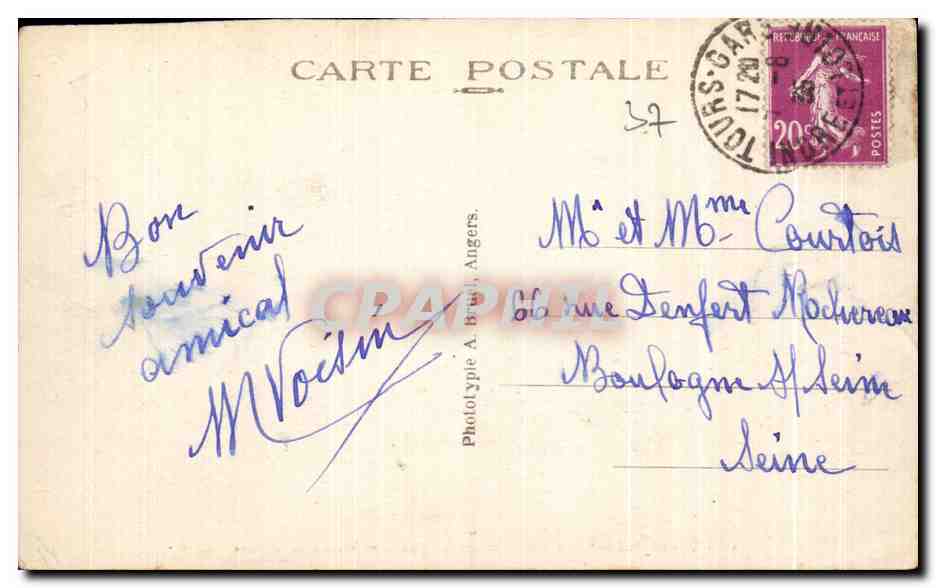 CARTE POSTALE
37
TOURS-GARE
INDRE ET
17 20
8
REPUBLIQUE FRANÇAISE
20
POSTES
Bon
souvenir
amical
M Voisin
Phototypie A. Bruel, Angers.
CPAPHIL
Mr et Mme Courtois
66 rue Denfert Rochereau
Boulogne s/ Seine
Seine